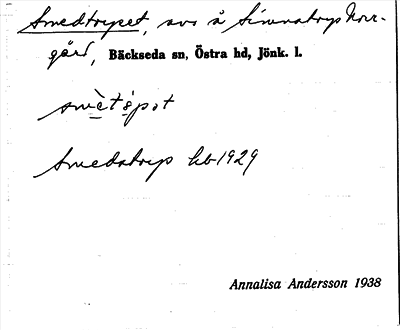 Smedtorpet, avs å Simnatorp Norr-
gård, Bäckseda sn, Östra hd, Jönk. l.
Smedatorp hb 1929
Annalisa Andersson 1938